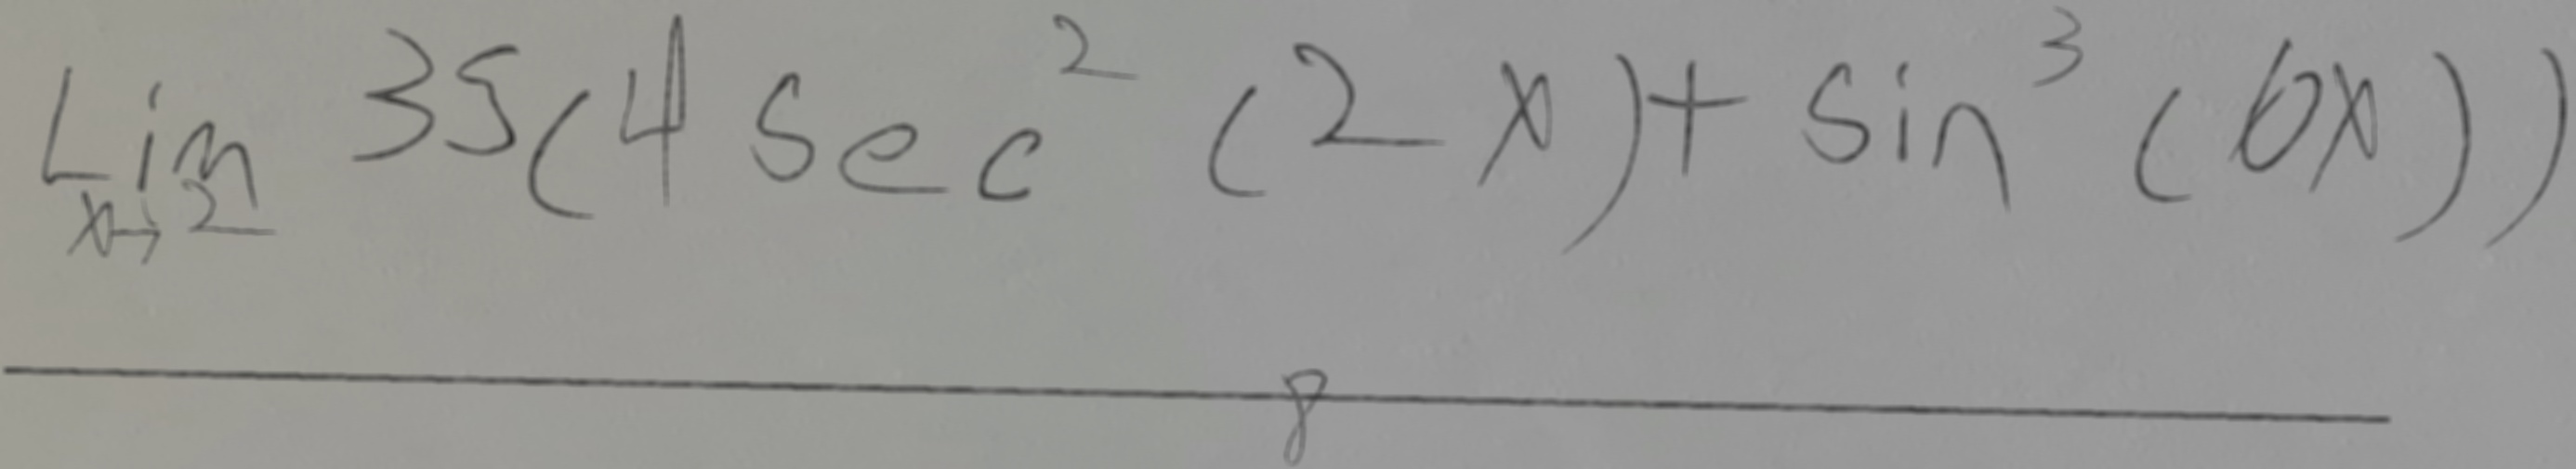 Lim 35(4 sec² (2x) + sin³ (6x))
x→2
8